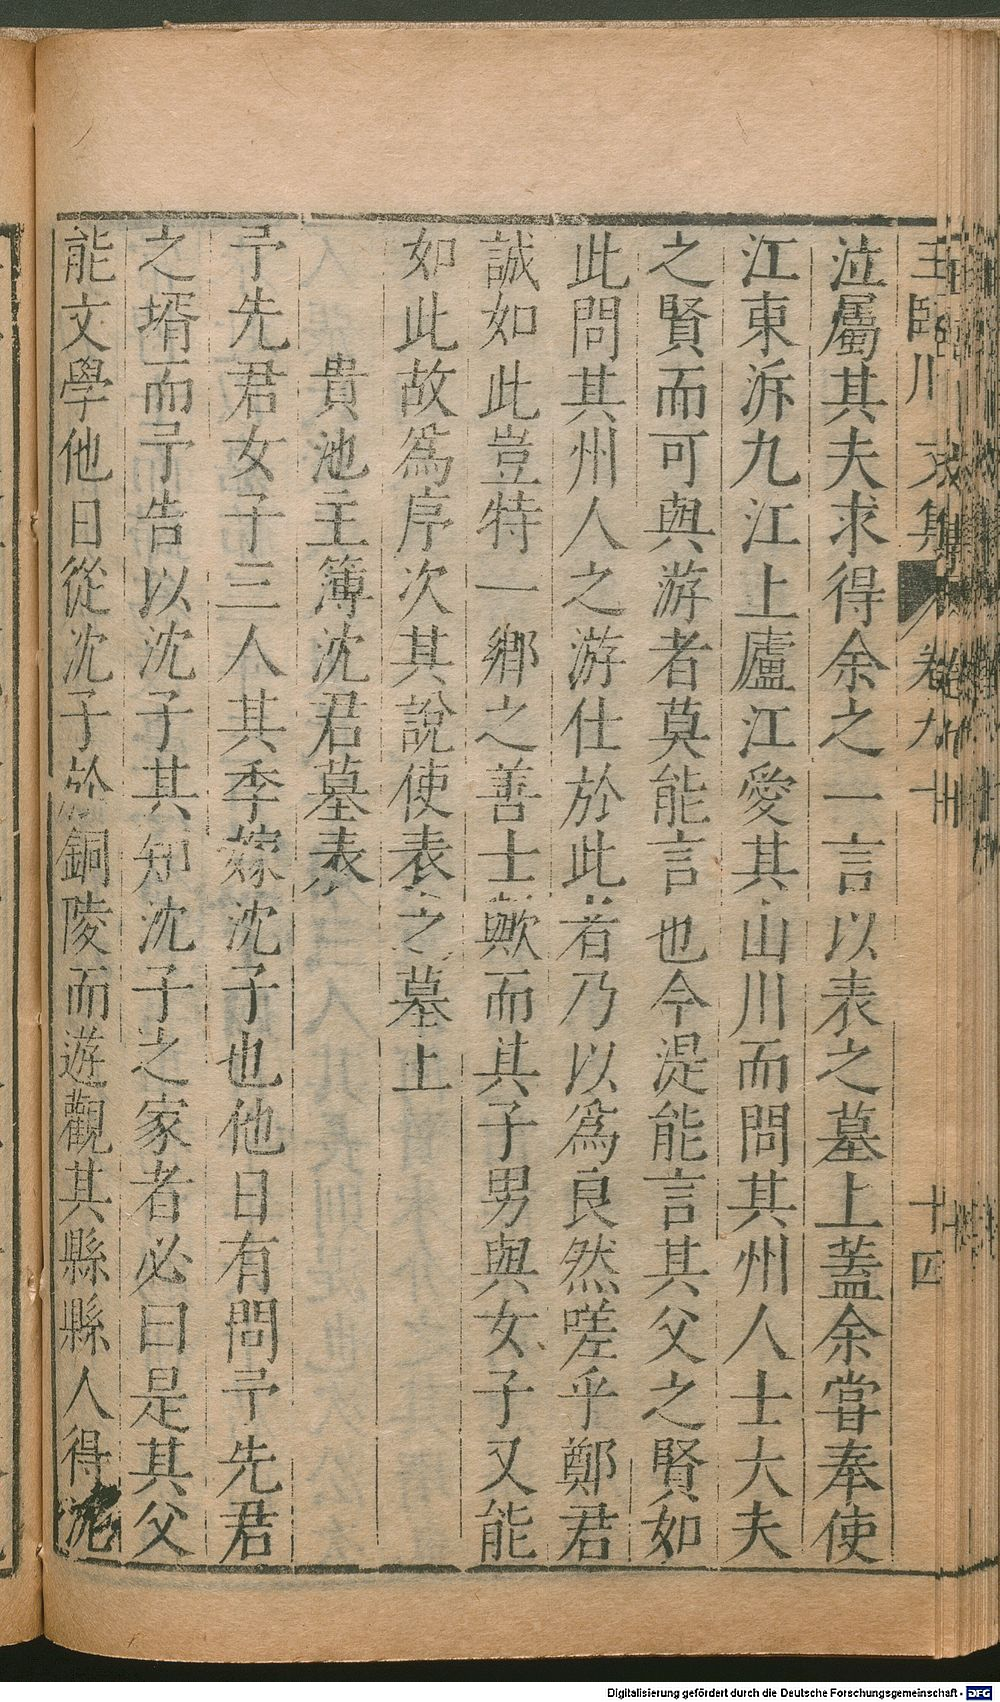 王臨川文集 卷九十 十四
泣屬其夫求得余之一言以表之墓上蓋余嘗奉使
江東泝九江上廬江愛其山川而問其州人士大夫
之賢而可與游者莫能言也今湜能言其父之賢如
此問其州人之游仕於此者乃以爲良然嗟乎鄭君
誠如此豈特一鄉之善士歟而其子男與女子又能
如此故爲序次其說使表之墓上
貴池主簿沈君墓表
予先君女子三人其季嫁沈子也他日有問予先君
之壻而予告以沈子其知沈子之家者必曰是其父
能文學他日從沈子於銅陵而遊觀其縣縣人得沈
Digitalisierung gefördert durch die Deutsche Forschungsgemeinschaft - DFG